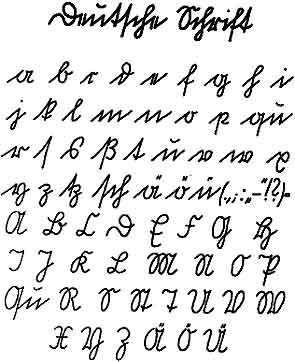 Deutsche Schrift
a b c d e f g h i
j k l m n o p qu
r ſ s ß t u v w x
y z tz ſch ä ö ü (.,;:„-“!?)-
A B C D E F G H
I J K L M N O P
Qu R S St T U V W
X Y Z Ä Ö Ü